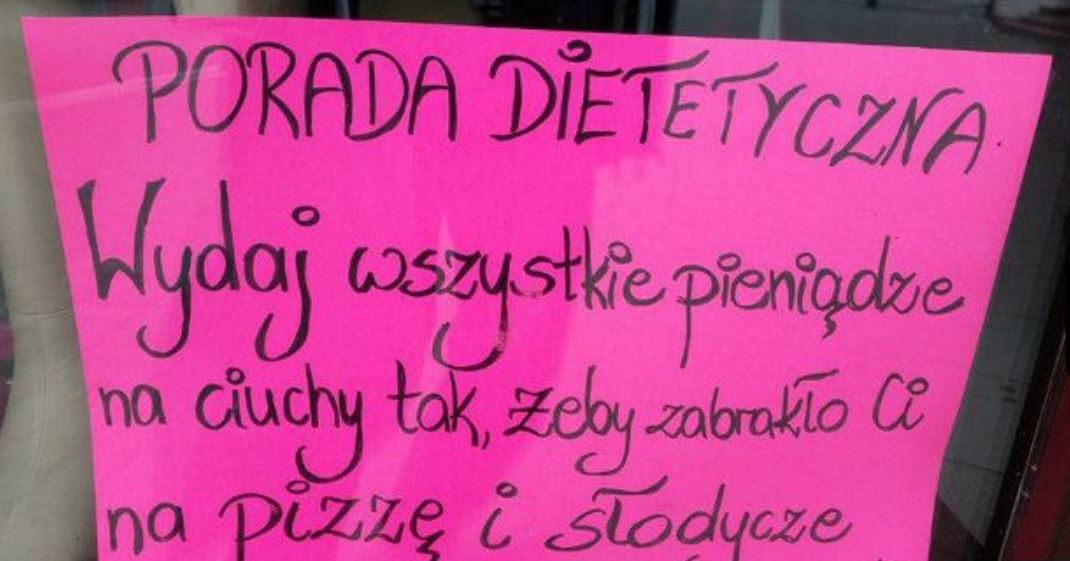 PORADA DIETETYCZNA
Wydaj wszystkie pieniądze
na ciuchy tak, żeby zabrakło Ci
na pizzę i słodycze